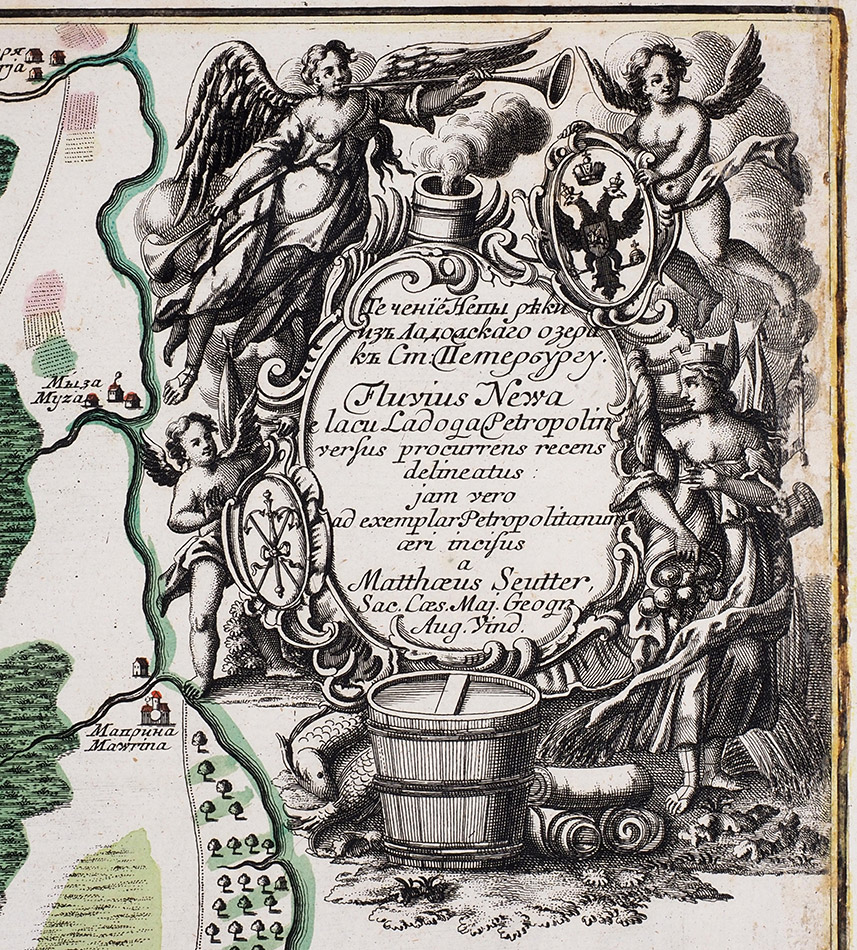 ря
rja
Мыза
Myza
Маприна
Mawrina
Те ченїе Непы рѣки
изъ Ладоаскаго озера
къ Ст: Петербургу.
Fluvius Newa
e lacu Ladoga Petropolin
versus procurrens recens
delineatus :
jam vero
ad exemplar Petropolitanum
æri incisus
a
Matthæus Seutter,
Sac. Cæs. Maj. Geogr.
Aug. Vind.